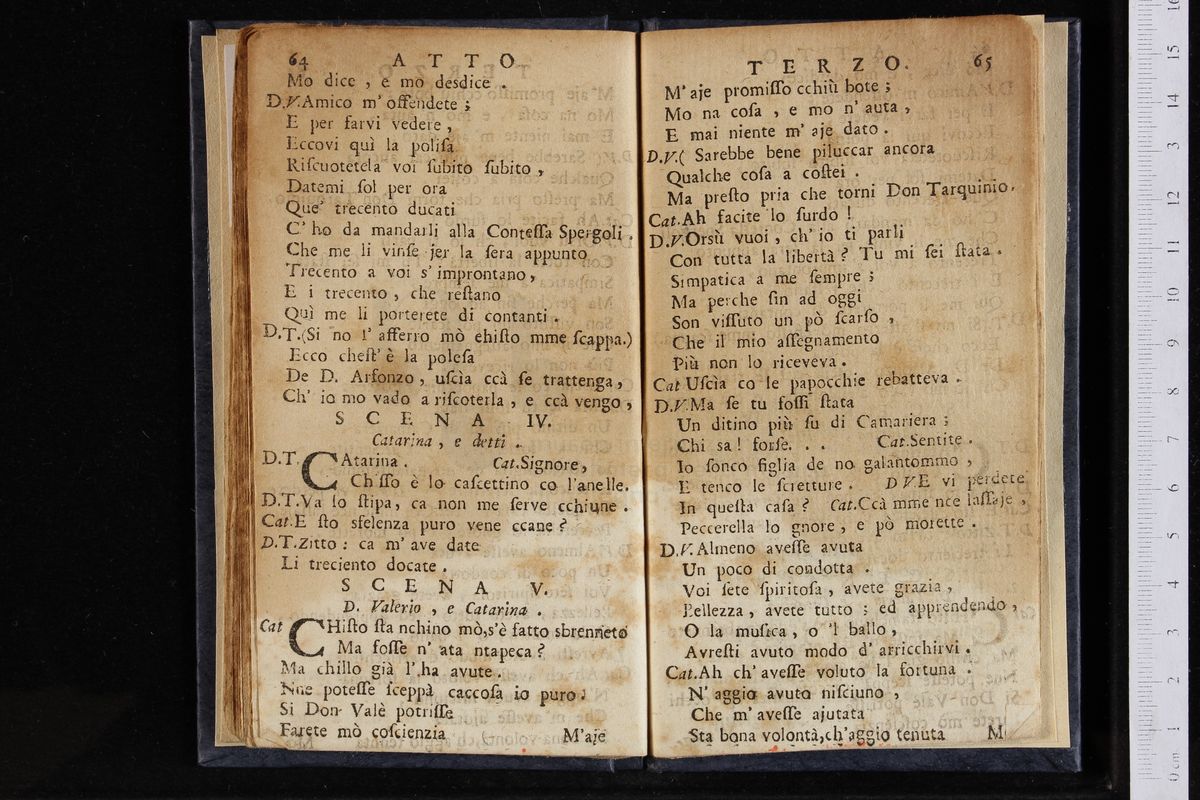 64 ATTO
Mo dice , e mo desdice .
D.V.Amico m' offendete ;
E per farvi vedere ,
Eccovi quì la polisa
Riſcuotetela voi ſubito ſubito ,
Datemi ſol per ora
Que' trecento ducati
C' ho da mandarli alla Conteſſa Spergoli ,
Che me li vinſe jer la ſera appunto
Trecento a voi s' improntano ,
E i trecento , che reſtano
Quì me li porterete di contanti .
D.T.(Si no l' afferro mò chiſto mme ſcappa.)
Ecco cheſt' è la poleſa
De D. Arfonzo , uſcia ccà ſe trattenga ,
Ch' io mo vado a riſcoterla , e ccà vengo ,
SCENA IV.
Catarina , e detti .
D.T. CAtarina . Cat.Signore,
Ch'ſſo è lo caſcettino co l'anelle.
D.T.Va lo ſtipa, ca non me ſerve cchiune .
Cat.E ſto sfelenza puro vene ccane ?
D.T.Zitto : ca m' ave date
Li treciento docate .
SCENA V.
D. Valerio , e Catarina .
Cat CHiſto ſta nchino mò,s'è fatto sbrenneto
Ma foſſe n' ata ntapeca ?
Ma chillo già l' ha avute .
Nne poteſſe ſceppà caccoſa io puro :
Si Don Valè potriſſe
Farete mò coſcienzia
M'aje
TERZO. 65
M' aje promiſſo cchiù bote ;
Mo na coſa , e mo n' auta ,
E mai niente m' aje dato .
D.V.( Sarebbe bene piluccar ancora
Qualche coſa a coſtei .
Ma preſto pria che torni Don Tarquinio.
Cat.Ah facite lo ſurdo !
D.V.Orsù vuoi , ch' io ti parli
Con tutta la libertà ? Tu mi ſei ſtata .
Simpatica a me ſempre ;
Ma perche ſin ad oggi
Son viſſuto un pò ſcarſo ,
Che il mio aſſegnamento
Più non lo riceveva .
Cat Uſcìa co le papocchie rebatteva .
D.V.Ma ſe tu foſſi ſtata
Un ditino più ſu di Camariera ;
Chi sa ! forſe. . . Cat.Sentite .
Io ſonco figlia de no galantommo ,
E tenco le ſcietture . D V E vi perdete
In queſta caſa ? Cat.Ccà mme nce laſſaje ,
Peccerella lo gnore , e pò morette .
D.V.Almeno aveſſe avuta
Un poco di condotta .
Voi ſete ſpiritoſa , avete grazia ,
Bellezza , avete tutto ; ed apprendendo ,
O la muſica , o 'l ballo ,
Avreſti avuto modo d' arricchirvi .
Cat.Ah ch' aveſſe voluto la fortuna .
N' aggio avuto niſciuno ,
Che m' aveſſe ajutata
Sta bona volontà,ch'aggio tenuta
M